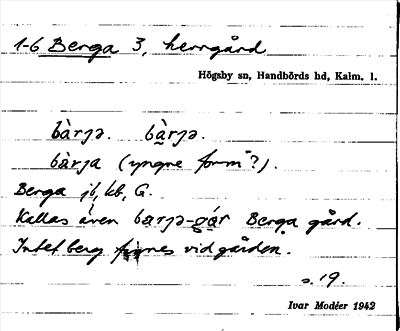 1-6 Berga 3, herrgård
Högsby sn, Handbörds hd, Kalm. l.
bàrjə. bàrjə.
bàrja (yngre form?).
Berga jb, kb, G.
Kallas även barjə-gǻr Berga gård.
Intet berg finnes vid gården.
s. 19.
Ivar Modéer 1942